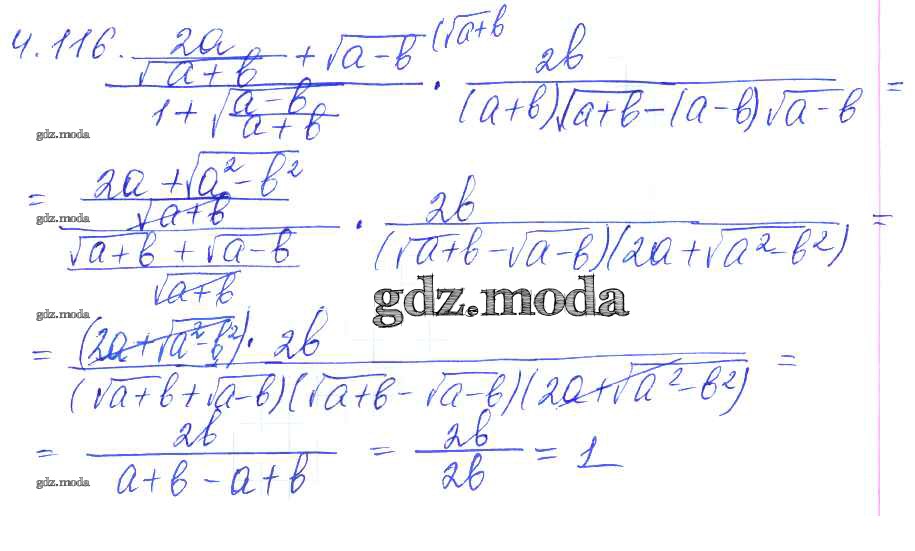 4.116. (2a/√(a+b) + √(a-b) (√a+b)/(1 + √((a-b)/(a+b))) · 2b/((a+b)√(a+b) - (a-b)√(a-b)) =
gdz.moda
= ((2a + √(a²-b²))/√(a+b))/((√(a+b) + √(a-b))/√(a+b)) · 2b/((√(a+b) - √(a-b))(2a + √(a²-b²))) =
gdz.moda
gdz.moda
gdz.moda
= ((2a + √(a²-b²)) · 2b)/((√(a+b) + √(a-b))(√(a+b) - √(a-b))(2a + √(a²-b²))) =
= 2b/(a+b-a+b) = 2b/2b = 1
gdz.moda